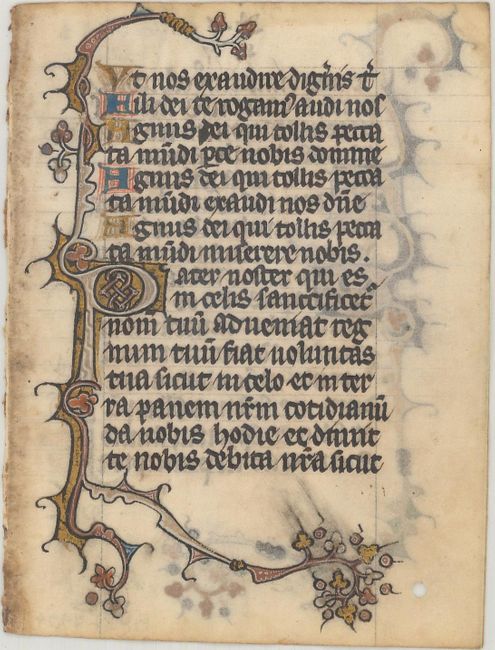 Ut nos exaudire digneris te
Fili dei te rogam' audi nos
Agnus dei qui tollis pecca
ta mūdi ꝑce nobis domine
Agnus dei qui tollis pecca
ta mūdi exaudi nos dn̄e
Agnus dei qui tollis pecca
ta mūdi miserere nobis.
Pater noster qui es
in celis sanctificet᷑
nom̄ tuū adueniat reg
num tuū fiat uoluntas
tua sicut in celo et in ter
ra panem nr̄m cotidianū
da nobis hodie et dimit
te nobis debita nr̄a sicut